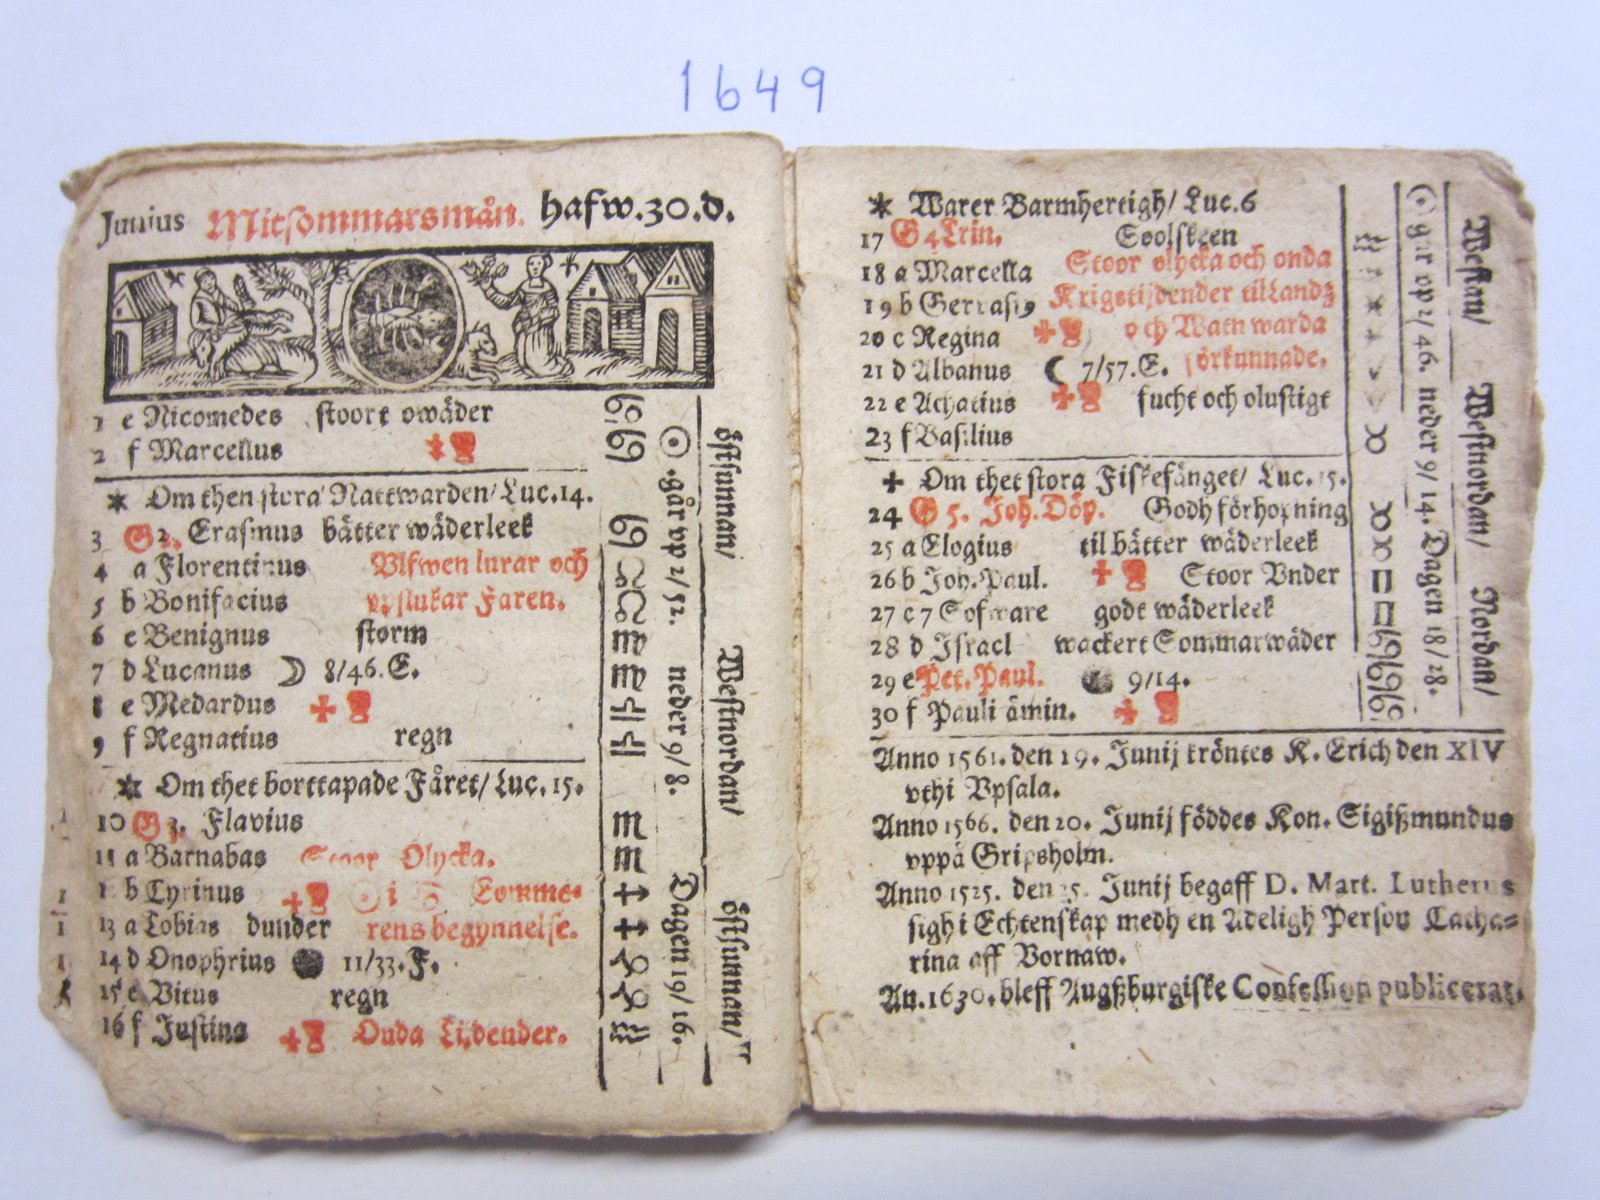 1649
Junius Mitsommarsmån. hafw. 30. d.
1 e Nicomedes stoort owäder
2 f Marcellus
Om then stora Nattwarden/ Luc. 14.
3 G 2. Erasmus bätter wäderleek
4 a Florentinus Vlfwen lurar och
5 b Bonifacius vpslukar Faren.
6 c Benignus storm
7 d Lucanus 8/46. E.
8 e Medardus
9 f Regnatius regn
Om thet borttapade Fåret/ Luc. 15.
10 G 3. Flavius
11 a Barnabas Stoor Olycka.
12 b Cyrinus ☉ i ♋ Somme-
13 a Tobias dunder rens begynnelse.
14 d Onophrius 11/33. F.
15 e Vitus regn
16 f Justina Onda Tijdender.
♋ ♋ ♋ ♌ ♌ ♍ ♍ ♎ ♎ ♏ ♏ ♐ ♐ ♑ ♑ ♒
☉. går vp 2/52. neder 9/8. Dagen 19/16.
östsunnan/ Westnordan/ östsunnan/
Warer Barmhertigh/ Luc. 6
17 G 4 Trin. Soolskeen
18 a Marcella Stoor olycka och onda
19 b Gervasi9 Krigstijdender til Landz
20 c Regina och Watn warda
21 d Albanus 7/57. E. förkunnade.
22 e Achatius fucht och olustigt
23 f Basilius
Om thet stora Fiskefänget/ Luc. 5.
24 G 5. Joh. Döp. Godh förhopning
25 a Elogius til bätter wäderleek
26 b Joh. Paul. Stoor Vnder
27 c 7 Sofware godt wäderleek
28 d Israel wackert Sommarwäder
29 e Pet. Paul. 9/14.
30 f Pauli åmin.
☉ går vp 2/46. neder 9/14. Dagen 18/28.
Westan/ Westnordan/ Nordan/
Anno 1561. den 19. Junij kröntes K. Erich den XIV
vthi Vpsala.
Anno 1566. den 20. Junij föddes Kon. Sigißmundus
vppå Gripsholm.
Anno 1525. den Junij begaff D. Mart. Lutherus
sigh i Echtenskap medh en Adeligh Person Catha-
rina aff Bornaw.
An. 1630. bleff Augßburgiske Confession publicerat.